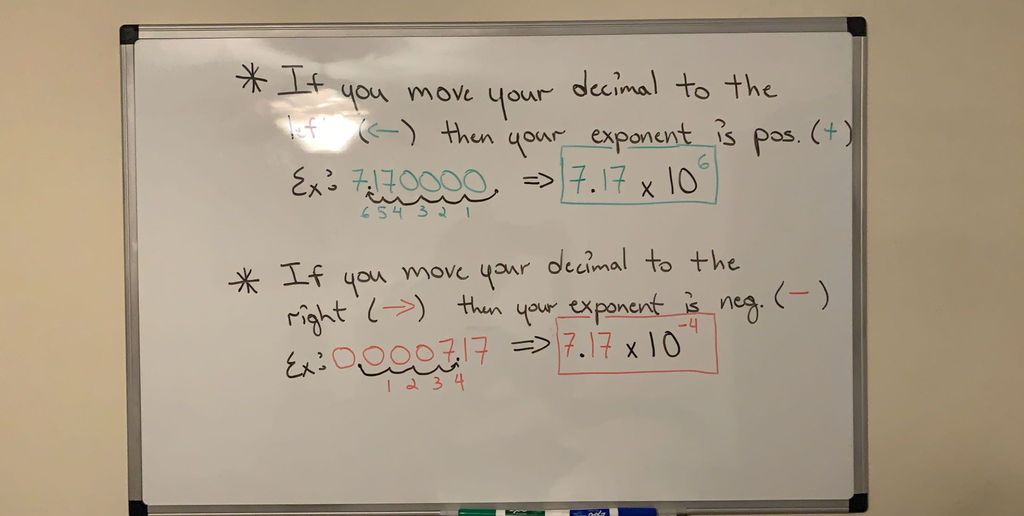 * If you move your decimal to the
left (←) then your exponent is pos. (+)
Ex: 7.170000. => 7.17 x 10⁶
6 5 4 3 2 1
* If you move your decimal to the
right (→) then your exponent is neg. (-)
Ex: 0.0007.17 => 7.17 x 10⁻⁴
1 2 3 4